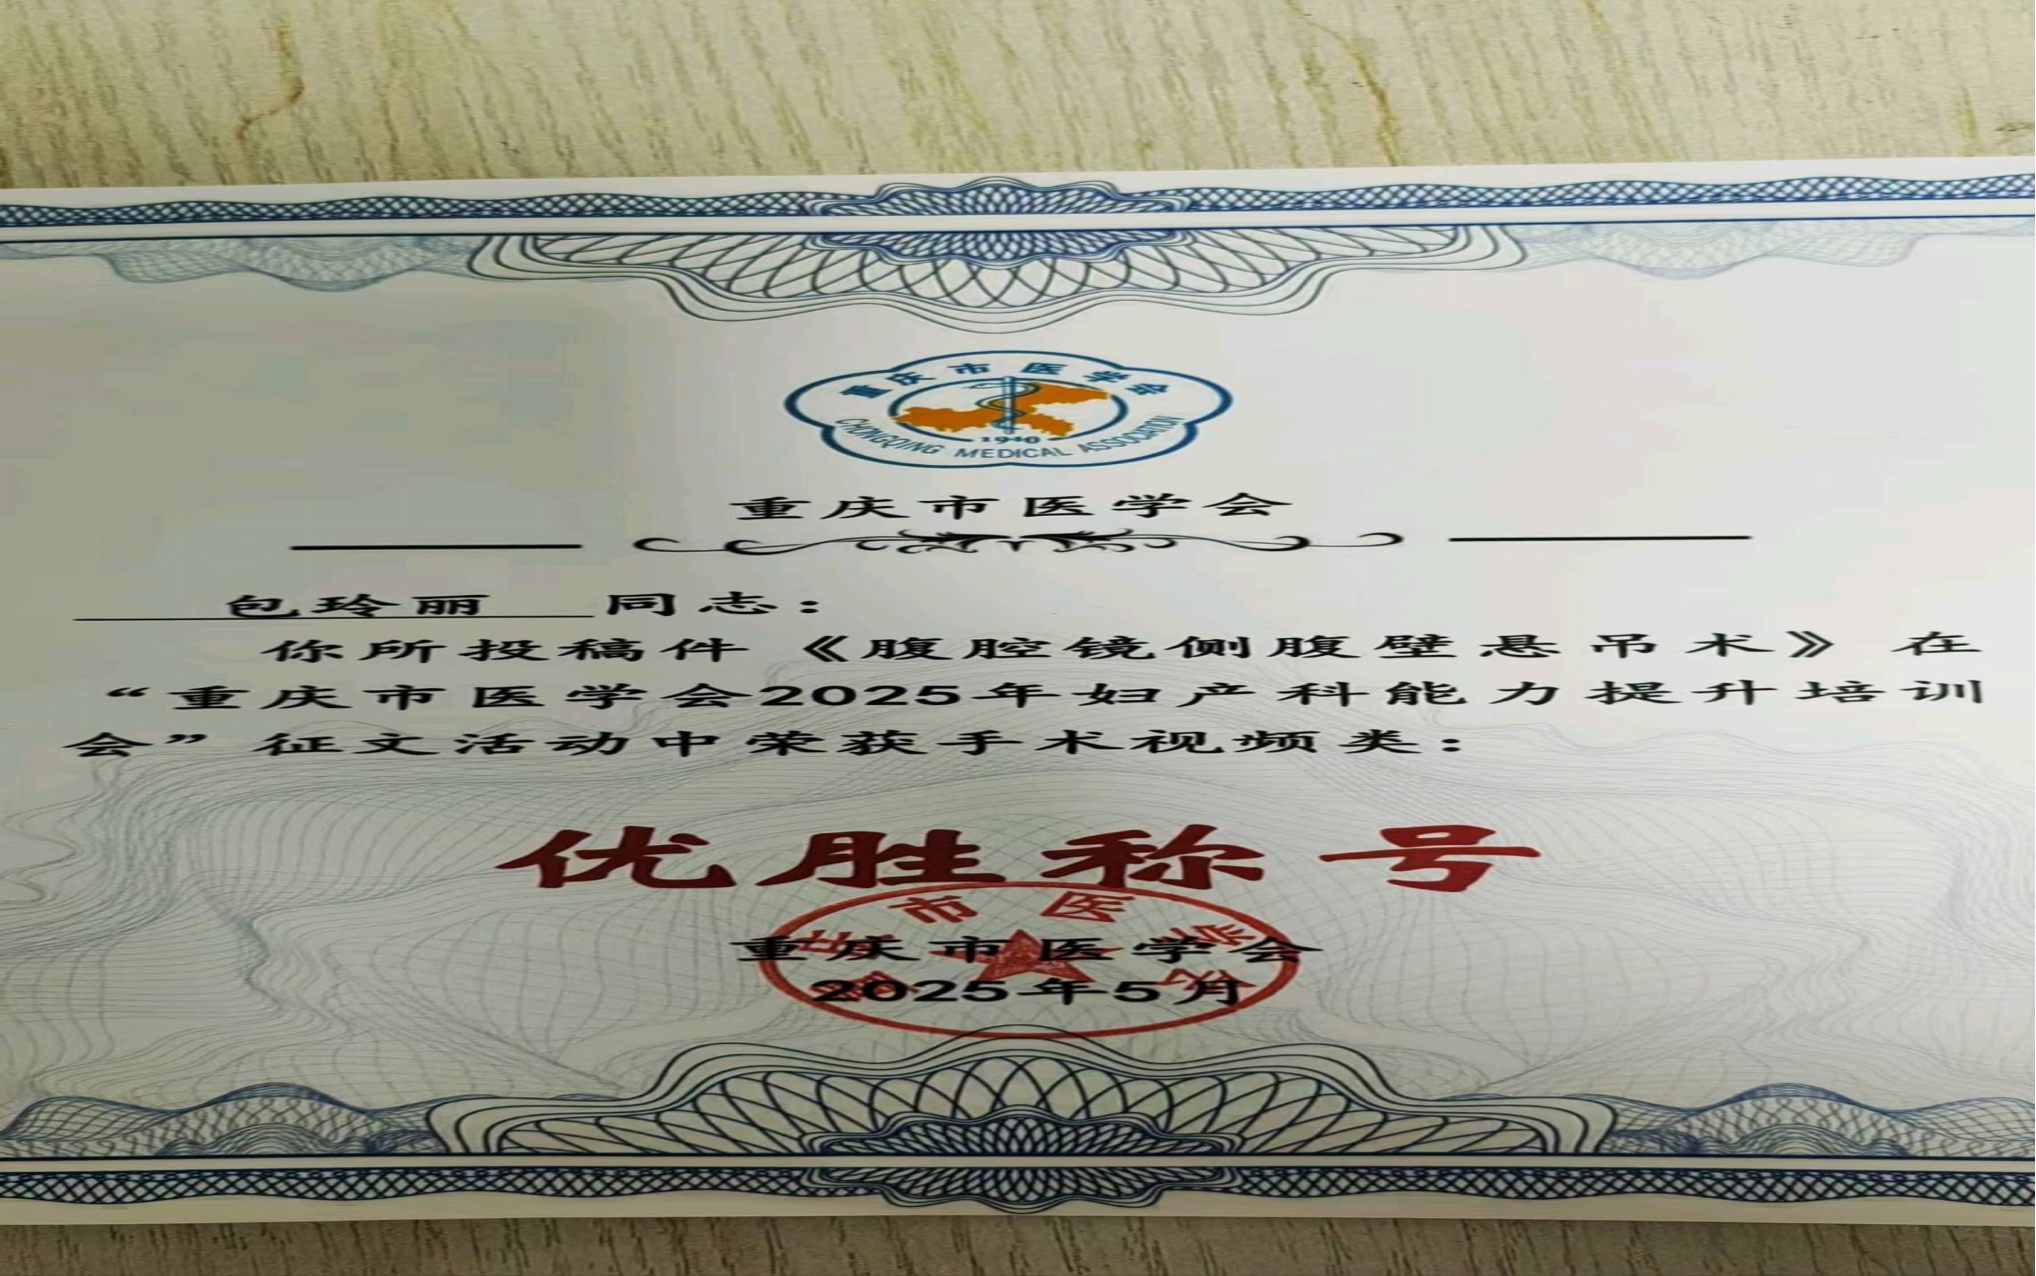 重庆市医学会
1940
CHONGQING MEDICAL ASSOCIATION
重庆市医学会
包玲丽 同志：
你所投稿件《腹腔镜侧腹壁悬吊术》在
“重庆市医学会2025年妇产科能力提升培训
会”征文活动中荣获手术视频类：
优胜称号
市医学
重庆市医学会
2025年5月